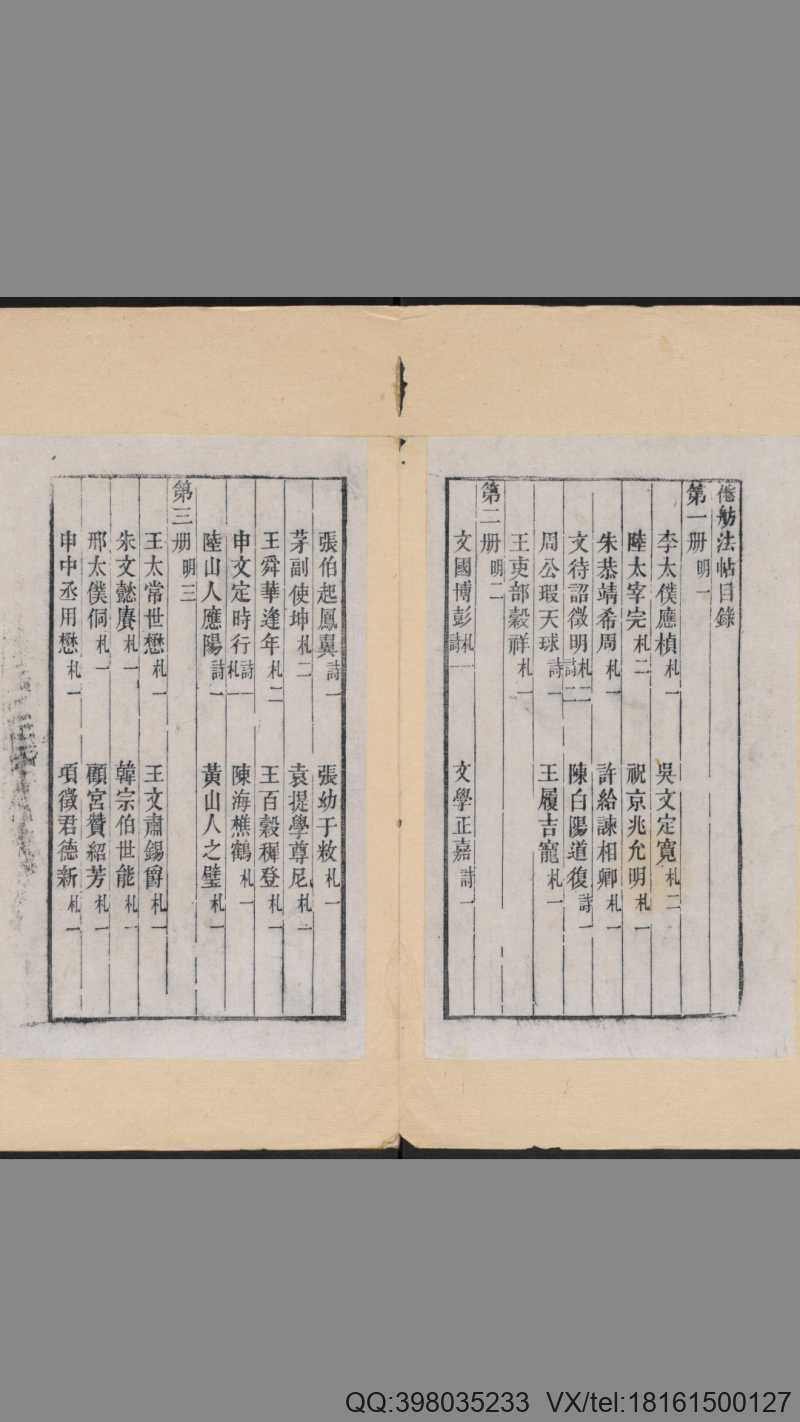 倦舫法帖目錄
第一册 明一
李太僕應楨 札一 吳文定寬 札二
陸太宰完 札二 祝京兆允明 札一
朱恭靖希周 札一 許給諫相卿 札一
文待詔徵明 札二 詩二 陳白陽道復 詩一
周公瑕天球 詩一 王履吉寵 札一
王吏部穀祥 札一
第二册 明二
文國博彭 札一 詩一 文學正嘉 詩一
張伯起鳳翼 詩一 張幼于敉 札一
茅副使坤 札二 袁提學尊尼 札一
王舜華逢年 札二 王百穀穉登 札一
申文定時行 詩一 札一 陳海樵鶴 札一
陸山人應陽 詩一 黃山人之璧 札一
第三册 明三
王太常世懋 札一 王文肅錫爵 札一
朱文懿賡 札一 韓宗伯世能 札一
邢太僕侗 札一 顧宮贊紹芳 札一
申中丞用懋 札一 項徵君德新 札一
QQ:398035233 VX/tel:18161500127